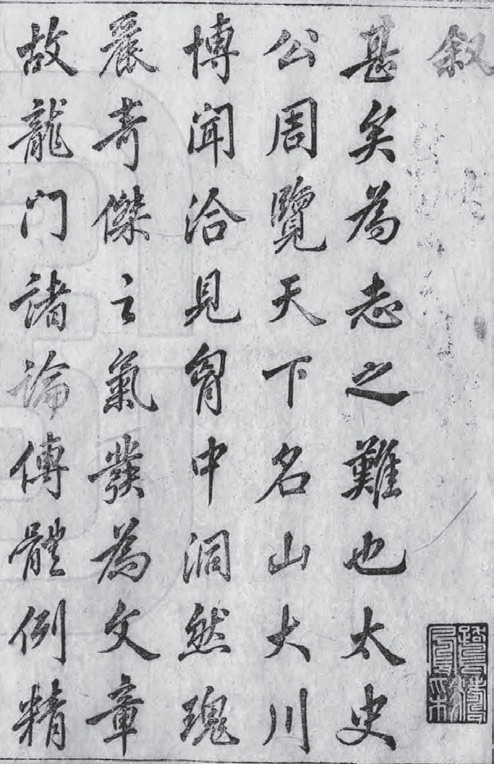 叙
甚矣為志之難也太史
公周覽天下名山大川
博聞洽見胷中洞然瑰
嵓奇傑之氣發為文章
故龍門諸論傳體例精